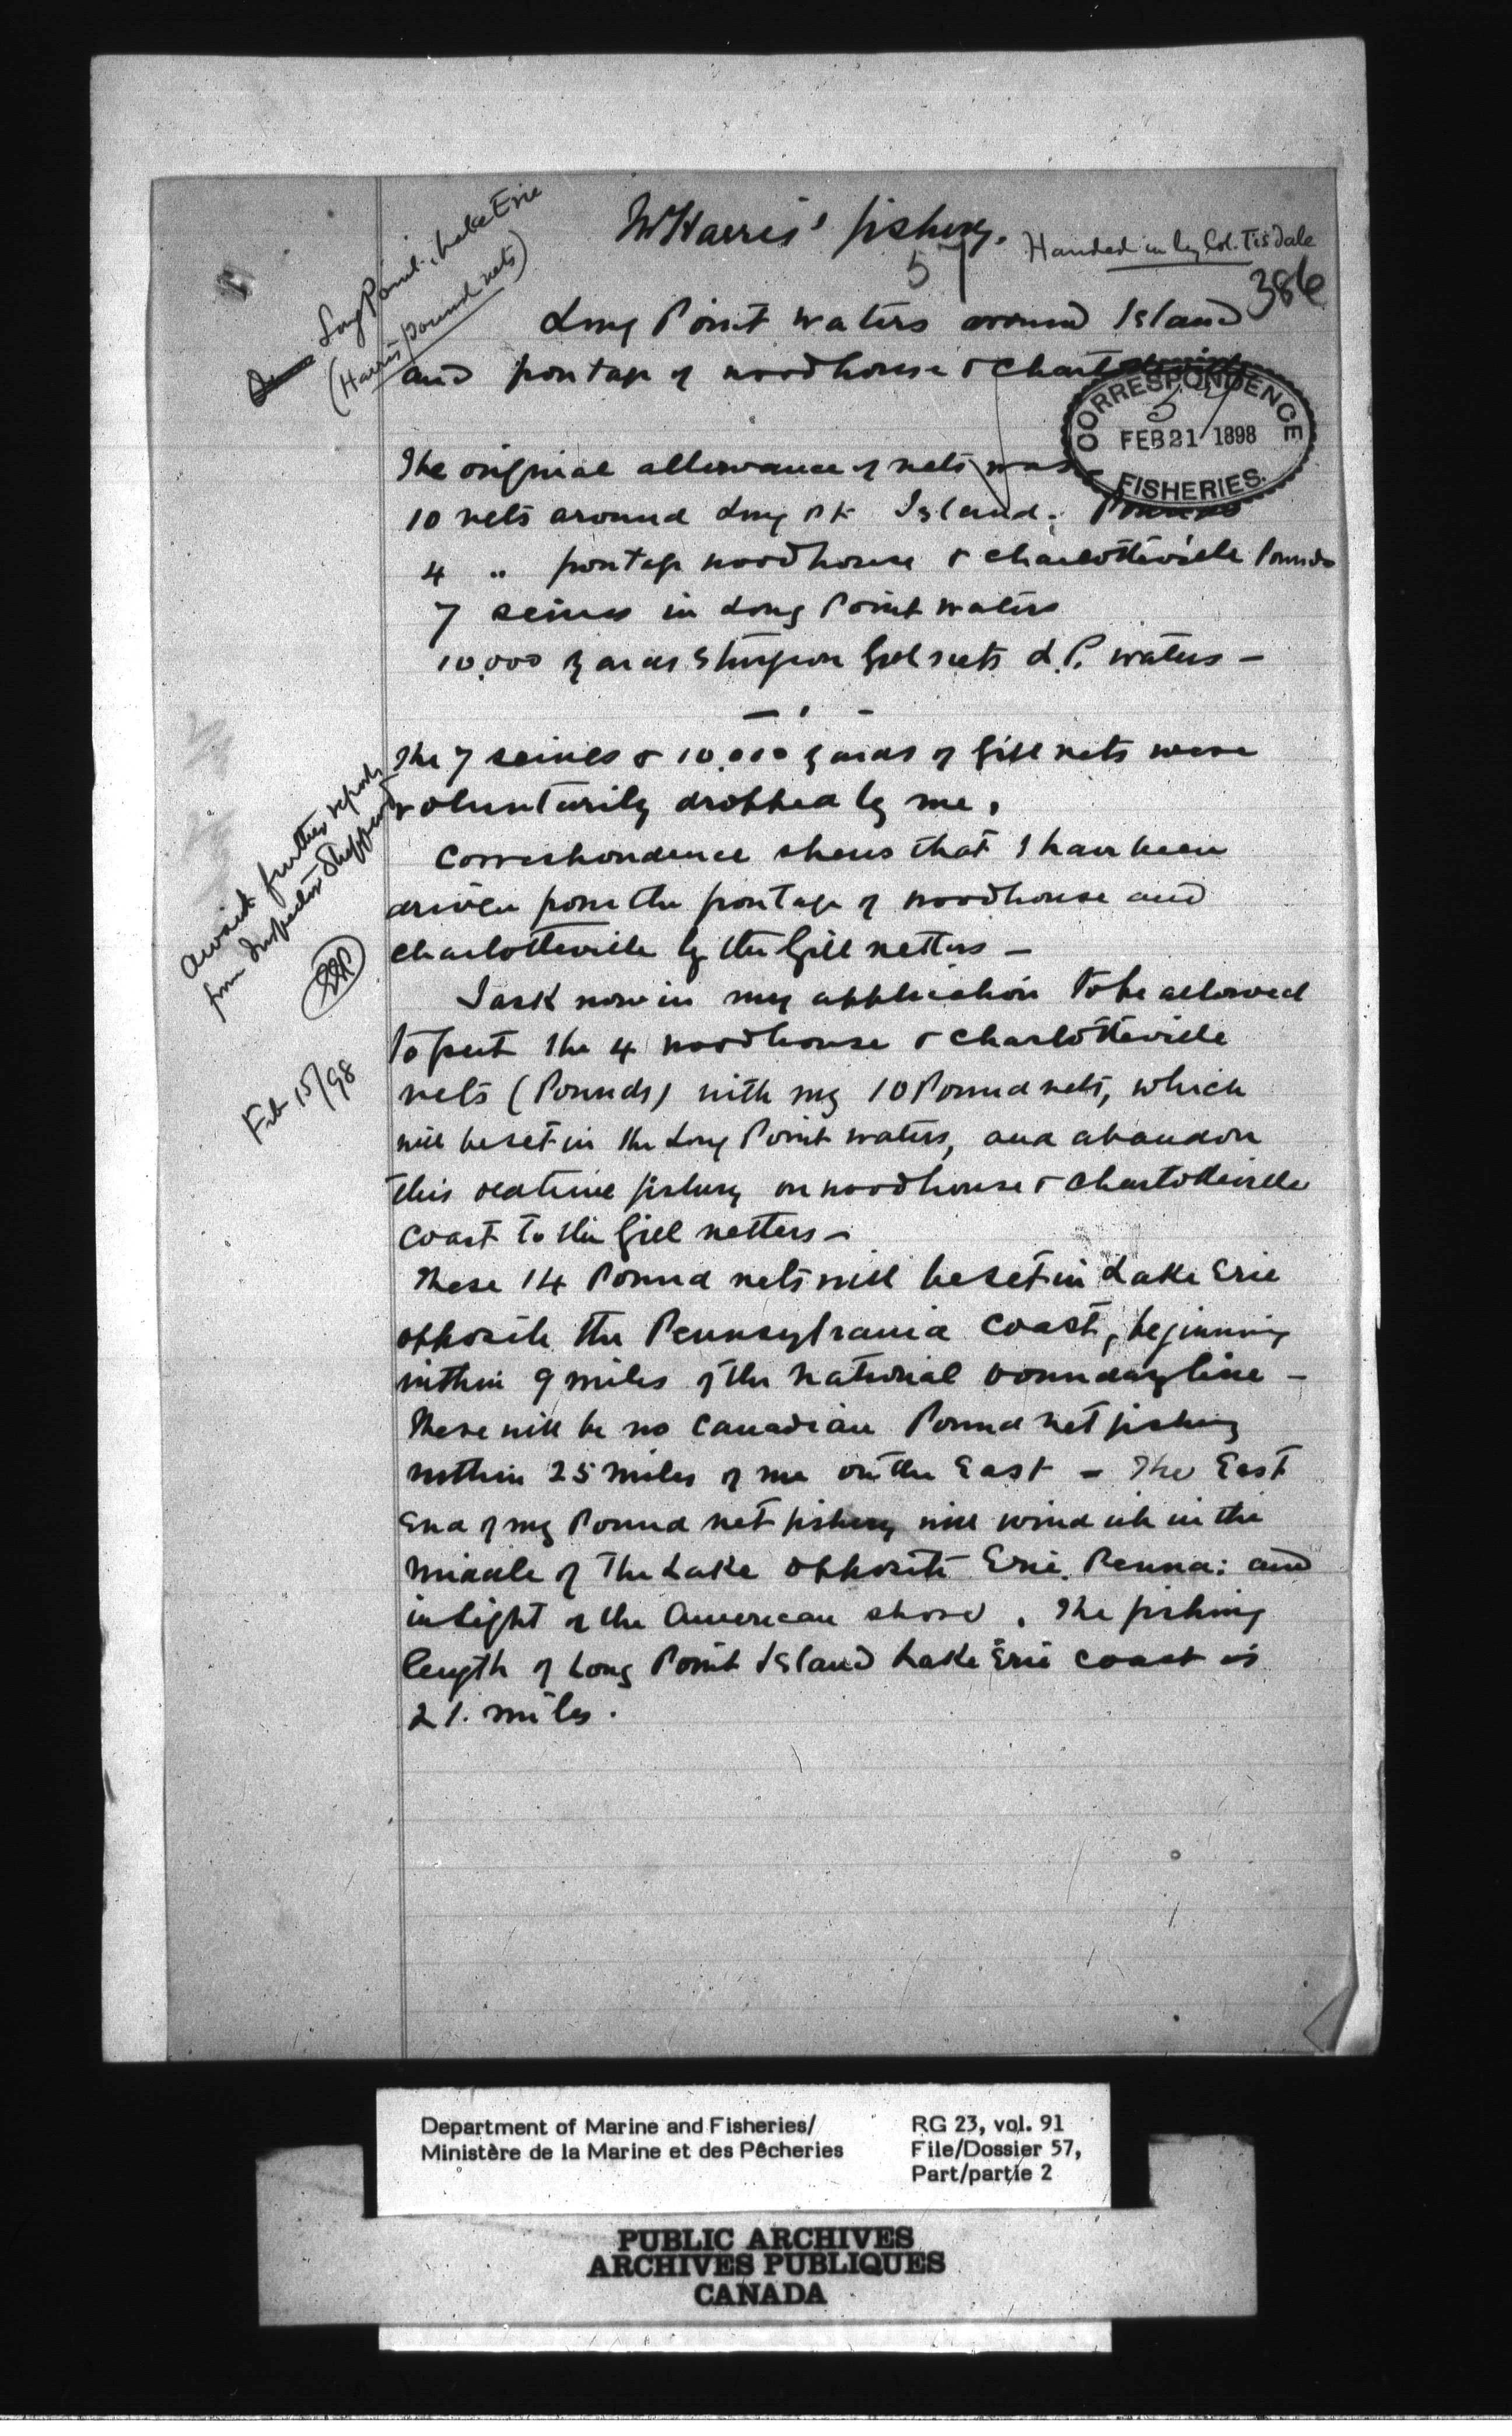 Mr Harris' fishery.
57
Handed in by Col. Tisdale
386
Long Point, Lake Erie
(Harris pound nets)
Long Point waters around Island
and frontage of Woodhouse & Charlotteville
CORRESPONDENCE
57
FEB 21 1898
FISHERIES.
The original allowance of nets was
10 nets around Long Pt Island. Pounds
4 " frontage Woodhouse & Charlotteville Pounds
7 seines in Long Point waters
10,000 yards Sturgeon Gill nets L.P. waters —
The 7 seines & 10,000 yards of Gill nets were
voluntarily dropped by me,
Correspondence shows that I have been
driven from the frontage of Woodhouse and
Charlotteville by the Gill netters —
I ask now in my application to be allowed
to put the 4 Woodhouse & Charlotteville
nets (Pounds) with my 10 Pound nets, which
will be set in the Long Point waters, and abandon
this old time fishery on Woodhouse & Charlotteville
coast to the Gill netters —
These 14 Pound nets will be set in Lake Erie
opposite the Pennsylvania coast, beginning
within 9 miles of the national boundary line —
There will be no Canadian Pound net fishing
within 25 miles of me on the East — The East
End of my Pound net fishery will wind up in the
middle of the Lake opposite Erie, Penna: and
in sight of the American shore. The fishing
length of Long Point Island Lake Erie coast is
21. miles.
await further report
from Inspector Sheppard
Feb 15/98
Department of Marine and Fisheries/
Ministère de la Marine et des Pêcheries
RG 23, vol. 91
File/Dossier 57,
Part/partie 2
PUBLIC ARCHIVES
ARCHIVES PUBLIQUES
CANADA